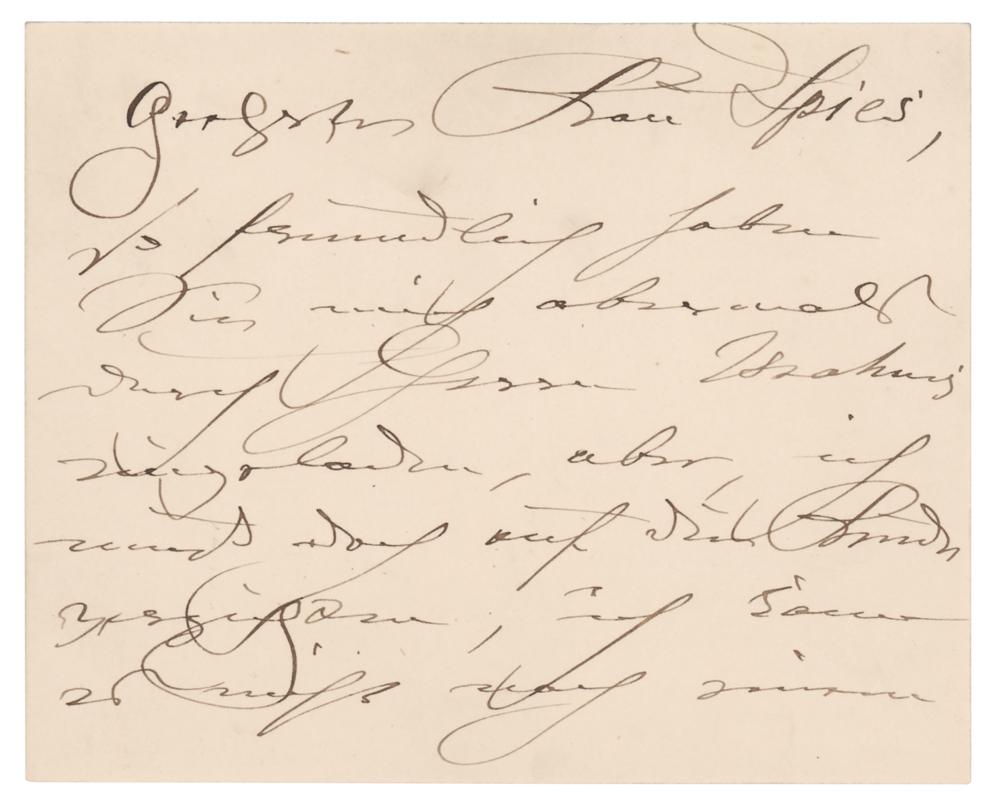 Geehrte Frau Spies,
So freundlich haben
Sie mich abermals
durch Herrn Brahms
eingeladen, aber, ich
muß doch auf die Freude
verzichten, ich kann
es nicht